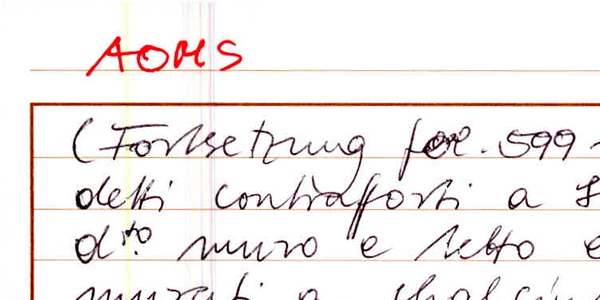 AOMS
(Fortsetzung fol. 599
detti contrafforti a
d.to muro e setto e
murati a